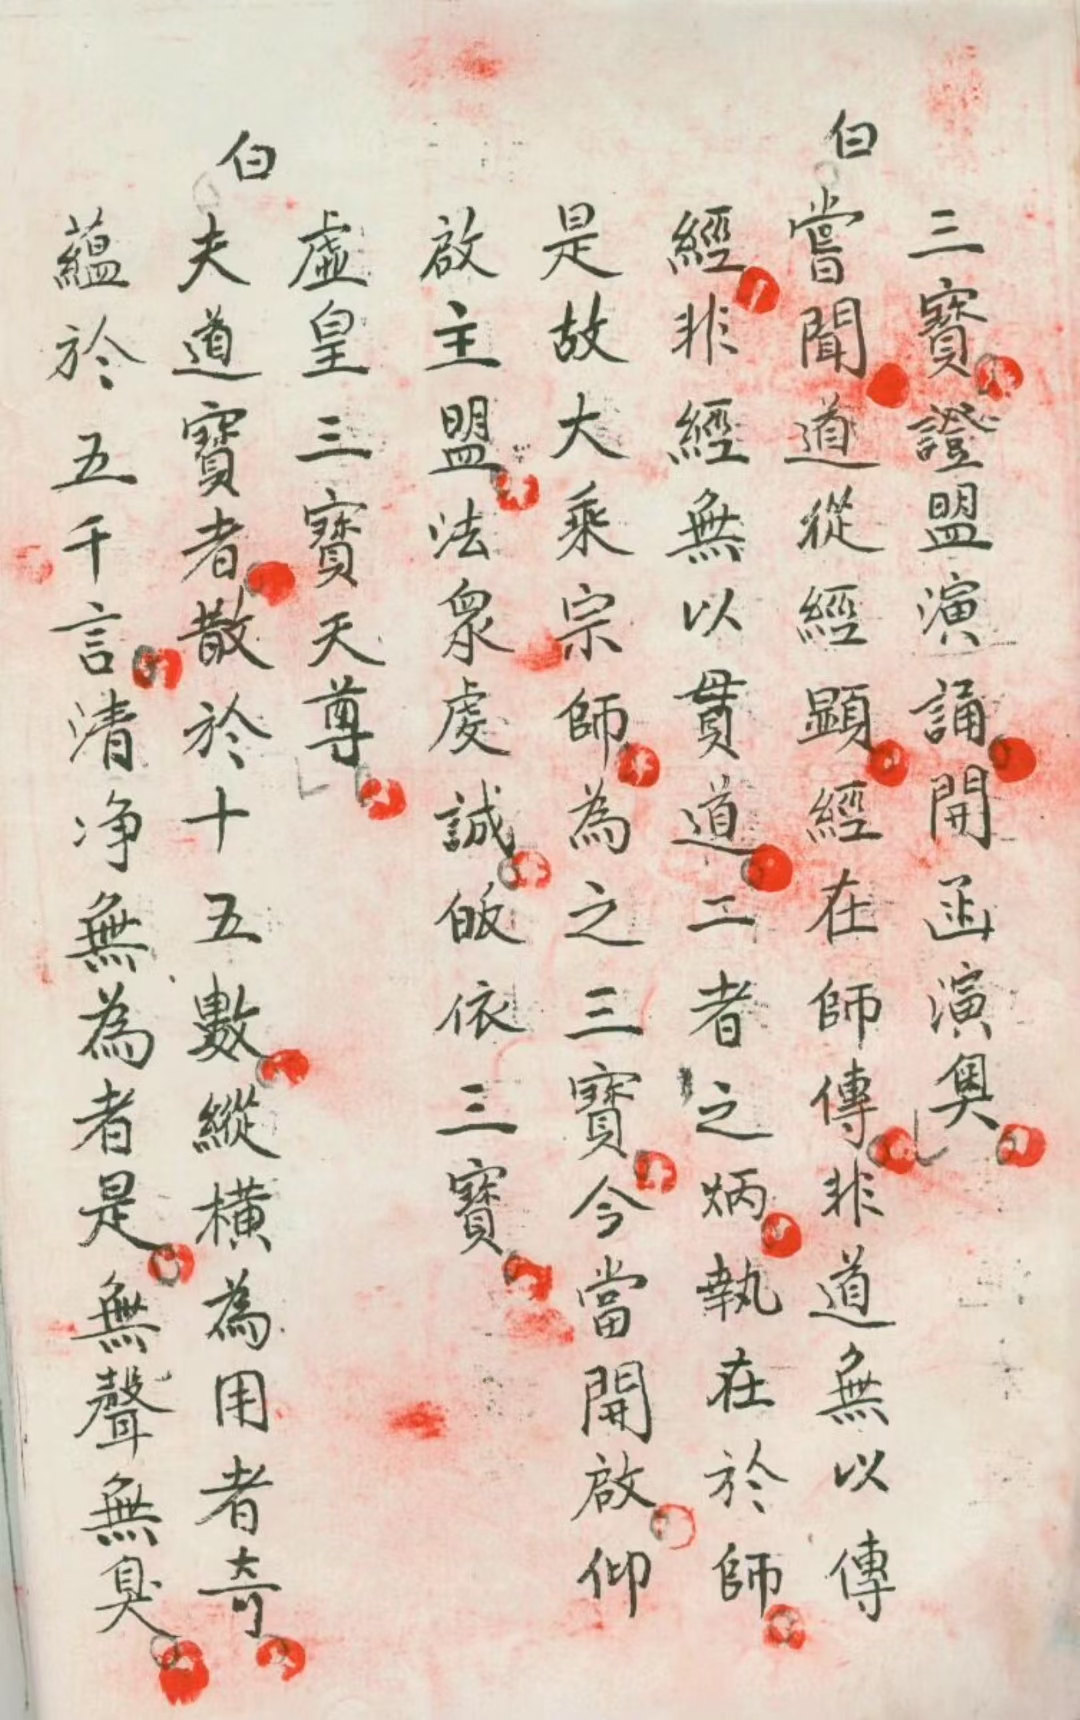 三寶證盟演誦開函演奧
白
嘗聞道從經顯經在師傳非道無以傳
經非經無以貫道二者之炳執在於師
是故大乘宗師為之三寶今當開啟仰
啟主盟法衆虔誠皈依三寶
虛皇三寶天尊
白
夫道寶者散於十五數縱橫為用者奇
蘊於五千言清净無為者是無聲無臭